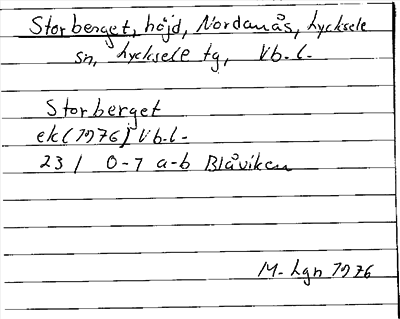 Storberget, höjd, Nordanås, Lycksele
sn, Lycksele tg, Vb.l.
Storberget
ek (1976) Vb.l.
23 I 0-1 a-b Blåviken
M. Lgn 1976